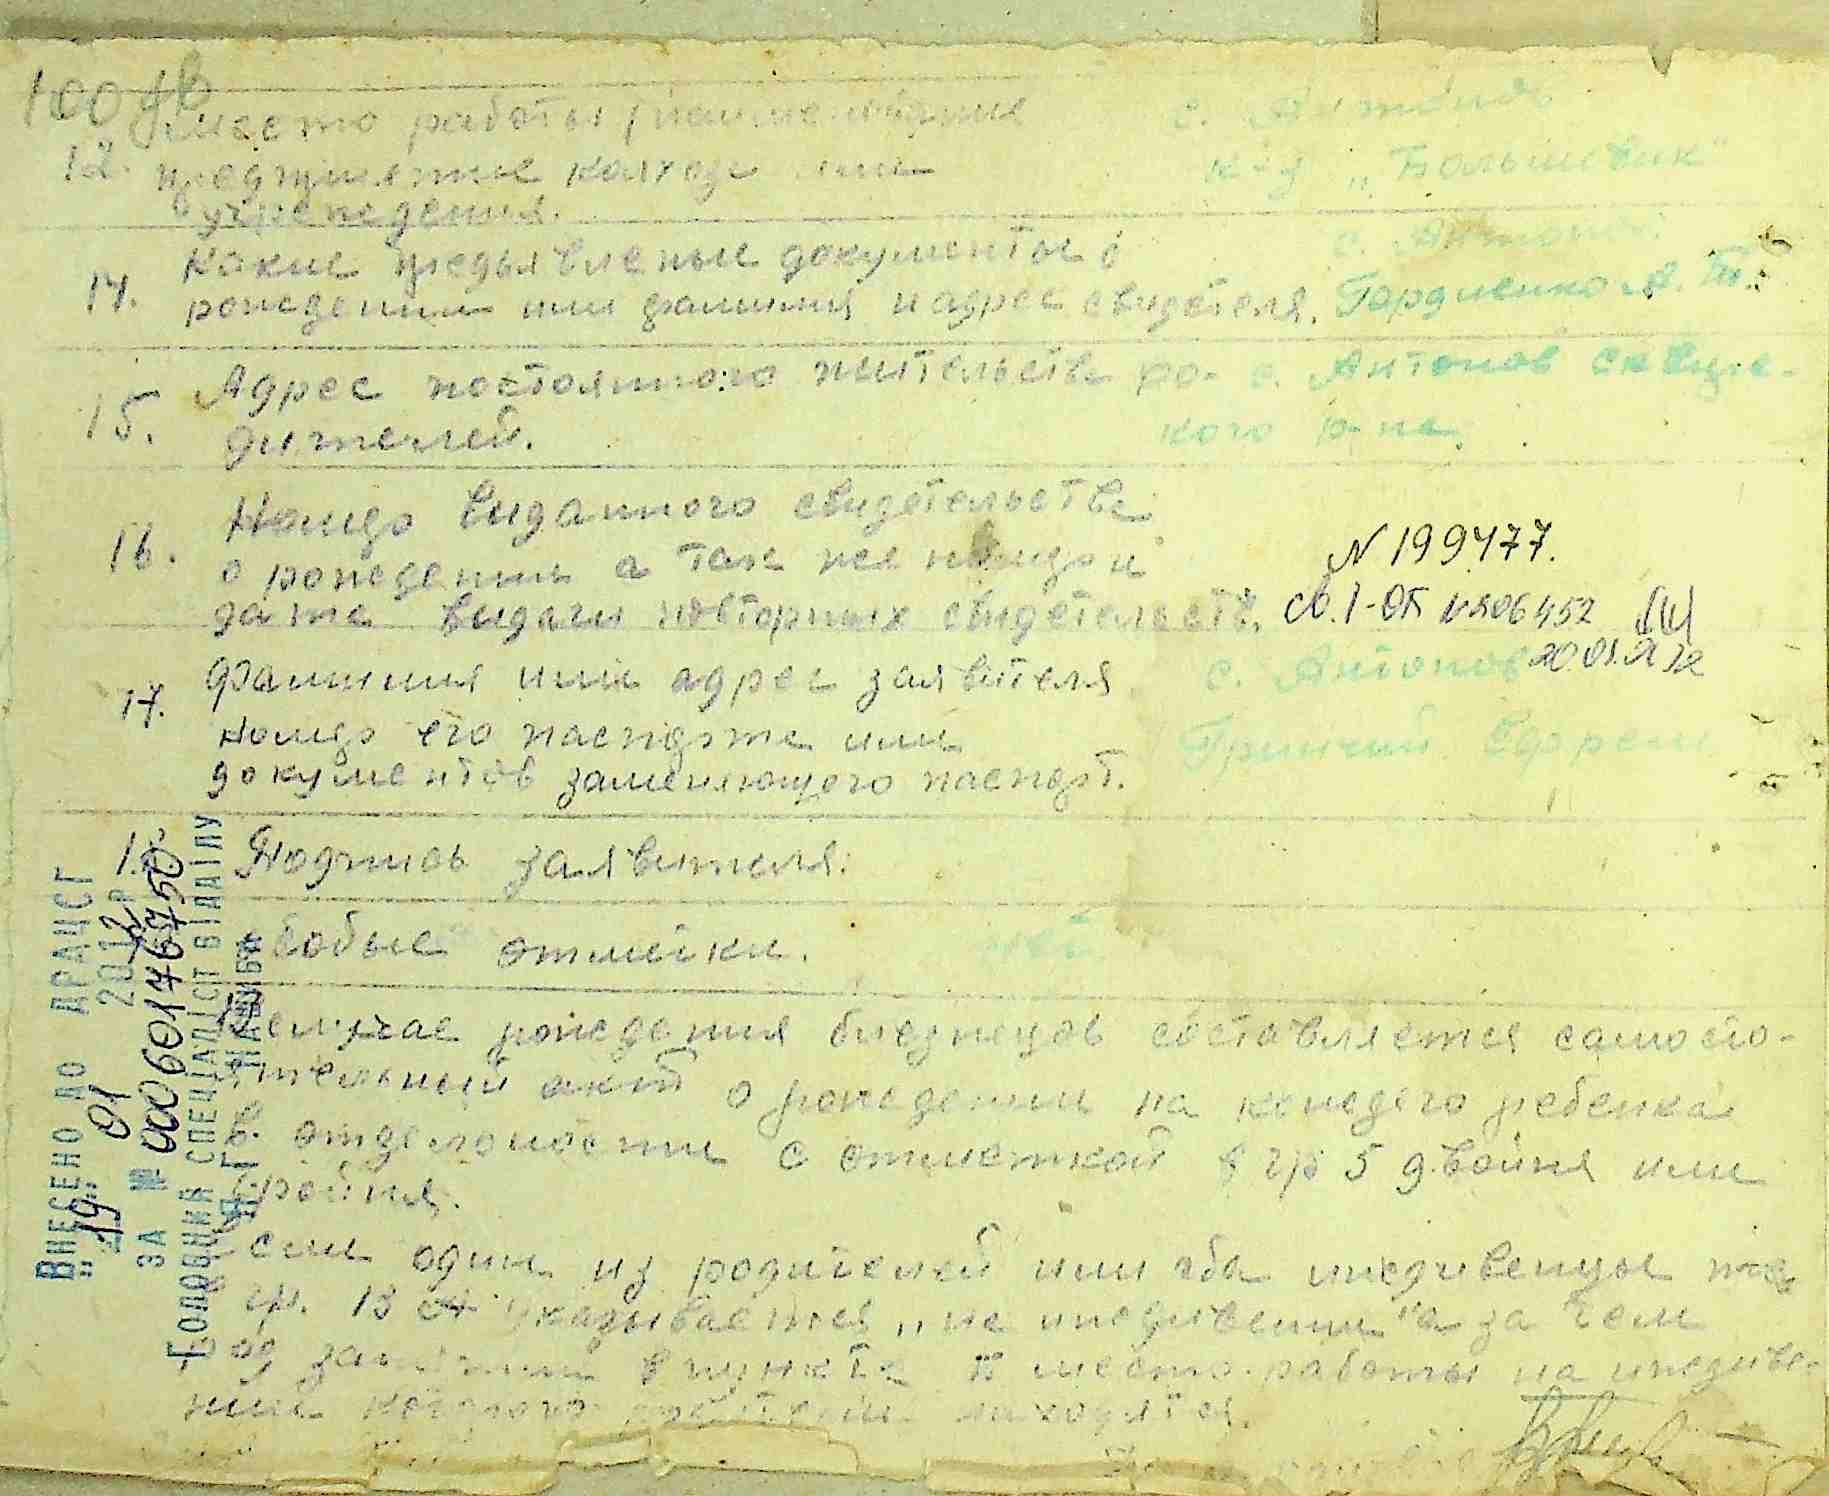 100 зв
место работы
12. предприятие колхоз или
учреждения.
с. Антонов
к-з „Большевик"
14. Какие предъявленые документы о
рождении или фамилия и адрес свидетеля.
с. Антонов
Гордиенко А. Т.
15. Адрес постоянного жительства ро-
дителей.
с. Антонов сквирс-
кого р-на.
16. Номер выданного свидетельства
о рождении а так же номера и
дата выдачи повторных свидетельств.
N 199477.
20.01.
17. Фамилия имя адрес заявителя
номер его паспорта или
документов заменяющего паспорт.
с. Антонов
Ефрем
18. Подпись заявителя.
особые отметки.
нет
В случае рождения близнецов составляется самосто-
ятельный акт о рождении на каждого ребенка
в отдельности с отметкой в гр 5 двойня или
тройня.
Если один из родителей или оба иждивенцы то в
гр. 13 указывается „на иждивении" а за чем
место работы на иждиве-
нии которого находятся.
ВНЕСЕНО ДО ДРАЦСГ
„19" 01 2012 Р
ЗА № 00060176750
ГОЛОВНИЙ СПЕЦІАЛІСТ ВІДДІЛУ